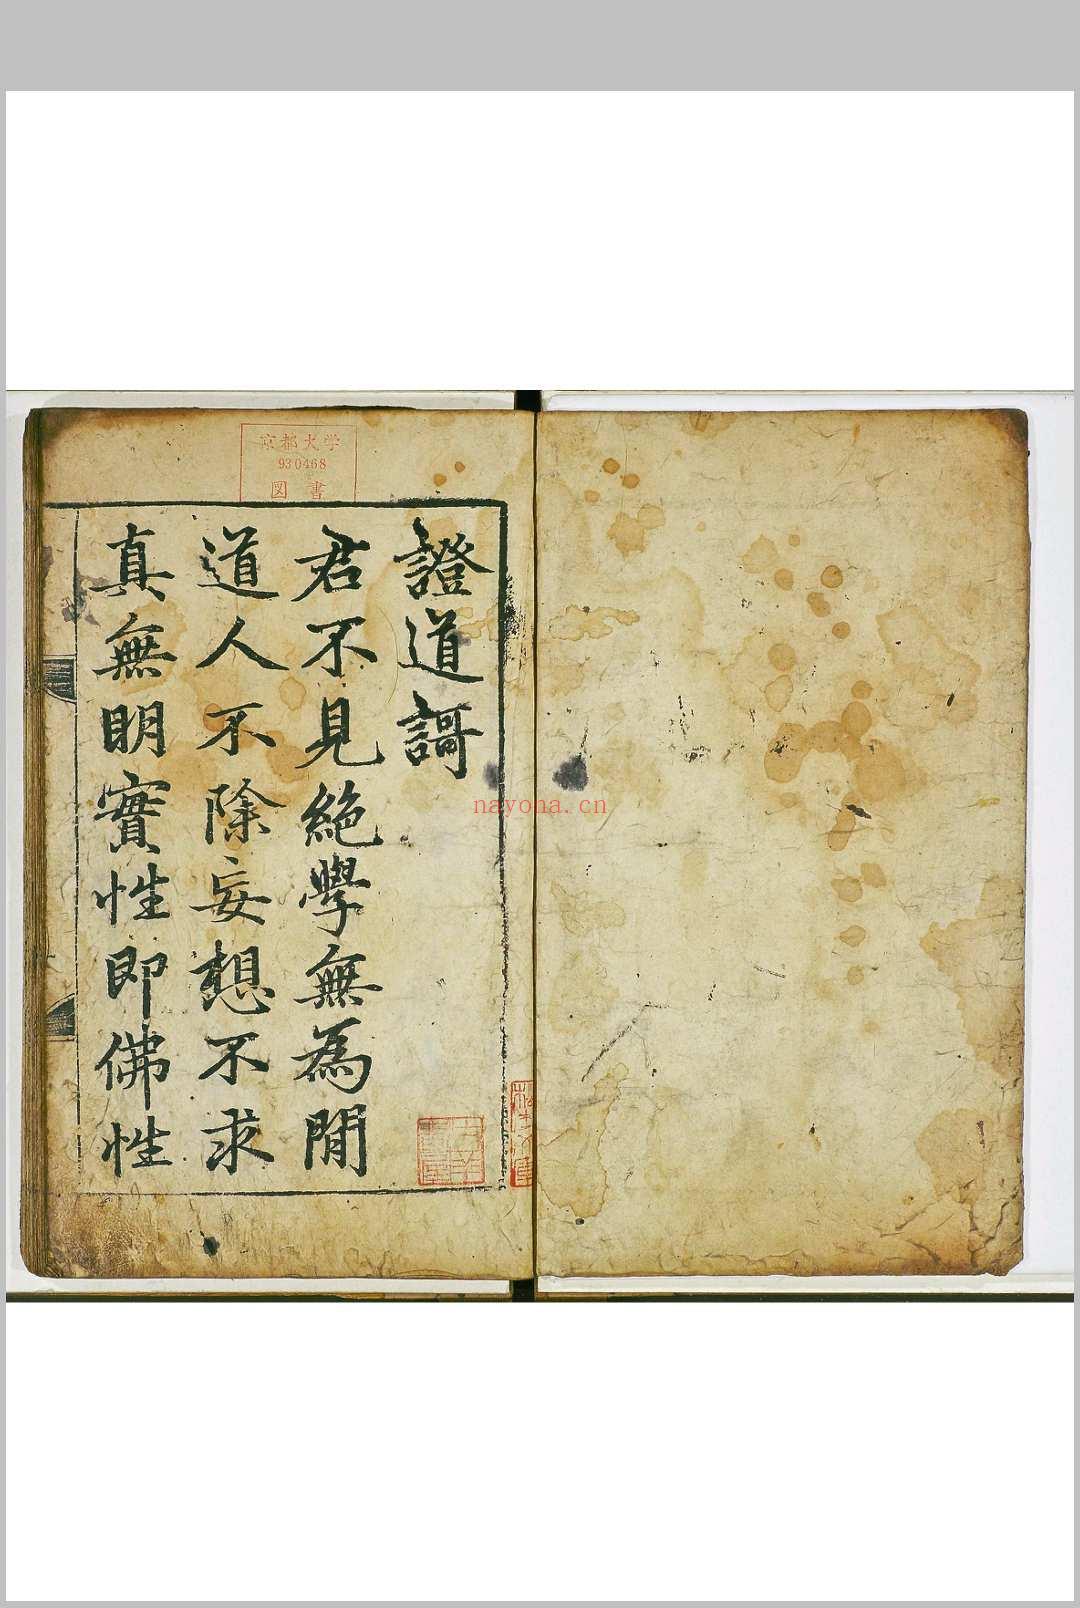 京都大学
930468
図書
證道謌
君不見絶學無為閒
道人不除妄想不求
真無明實性即佛性
nayona.cn